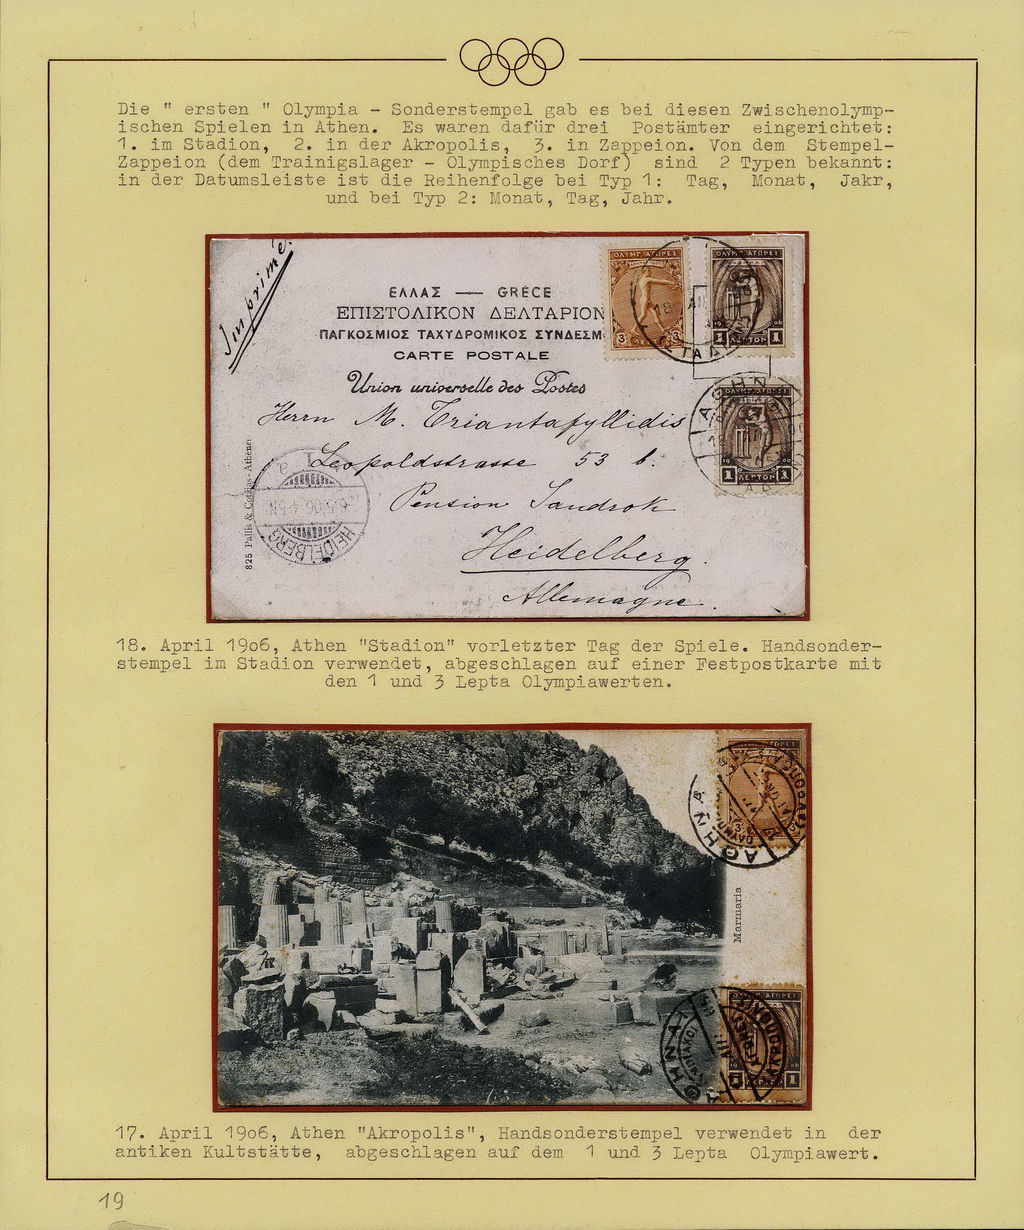 Die " ersten " Olympia - Sonderstempel gab es bei diesen Zwischenolymp-
ischen Spielen in Athen. Es waren dafür drei Postämter eingerichtet:
1. im Stadion, 2. in der Akropolis, 3. in Zappeion. Von dem Stempel-
Zappeion (dem Trainigslager - Olympisches Dorf) sind 2 Typen bekannt:
in der Datumsleiste ist die Reihenfolge bei Typ 1: Tag, Monat, Jakr,
und bei Typ 2: Monat, Tag, Jahr.
Imprimé.
ΕΛΛΑΣ — GRÈCE
ΕΠΙΣΤΟΛΙΚΟΝ ΔΕΛΤΑΡΙΟΝ
ΠΑΓΚΟΣΜΙΟΣ ΤΑΧΥΔΡΟΜΙΚΟΣ ΣΥΝΔΕΣΜ
CARTE POSTALE
Union universelle des Postes
ΟΛΥΜΠ. ΑΓΩΝΕΣ
3 ΛΕΠΤΑ 3
ΟΛΥΜΠ. ΑΓΩΝΕΣ
19 06
1 ΛΕΠΤΟΝ 1
19 06
1 ΛΕΠΤΟΝ 1
Herrn M. Triantafyllidis
Leopoldstrasse 53 b.
Pension Sandrok
Heidelberg.
Allemagne.
825 Pallis & Cotzias-Athènes
HEIDELBERG
18. April 19o6, Athen "Stadion" vorletzter Tag der Spiele. Handsonder-
stempel im Stadion verwendet, abgeschlagen auf einer Festpostkarte mit
den 1 und 3 Lepta Olympiawerten.
ΑΘΗΝΑ
Marmaria
1 1
17. April 19o6, Athen "Akropolis", Handsonderstempel verwendet in der
antiken Kultstätte, abgeschlagen auf dem 1 und 3 Lepta Olympiawert.
19